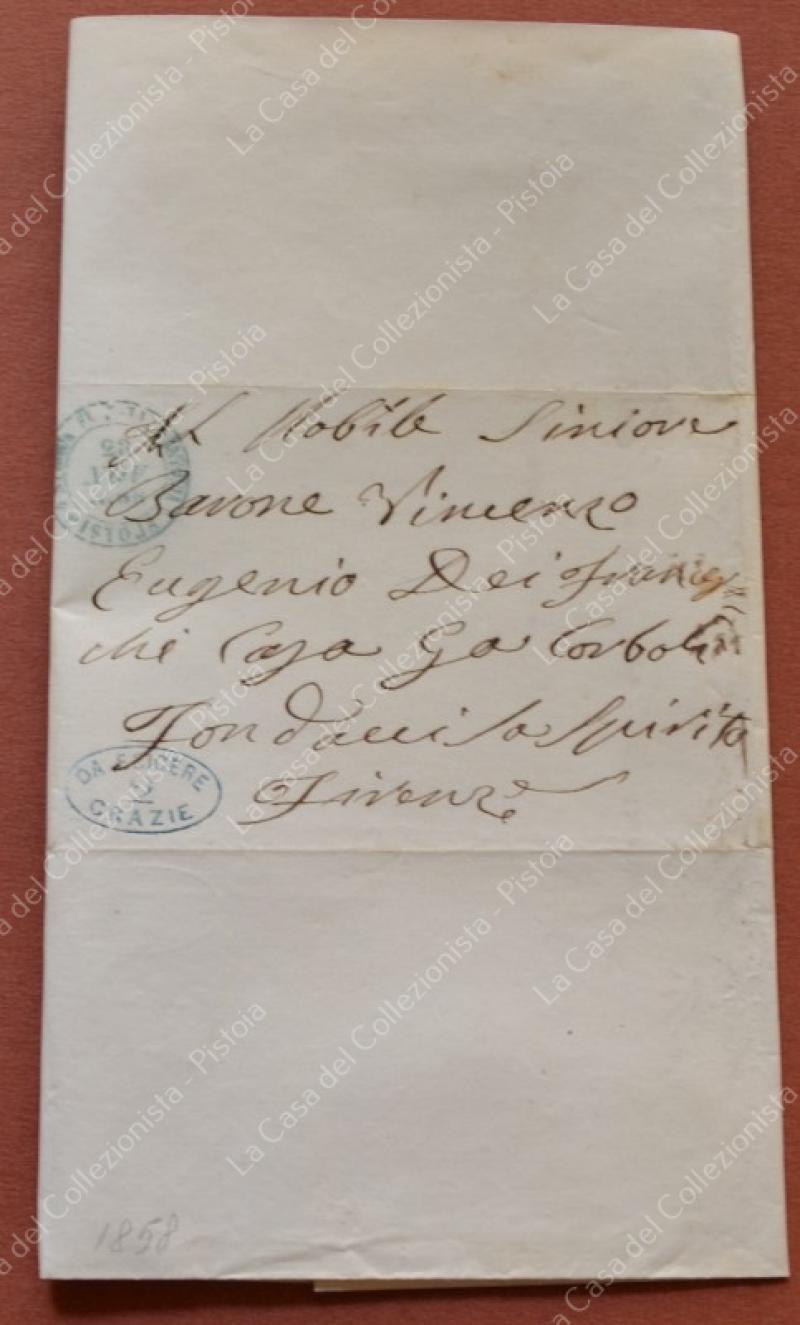 Al Nobile Siniore
Barone Vincenzo
Eugenio Dei Frances
chi Casa Ga Corboli
Fondacci So Spirito
Firenze
DA ESIGERE
2
CRAZIE
1858
La Casa del Collezionista - Pistoia